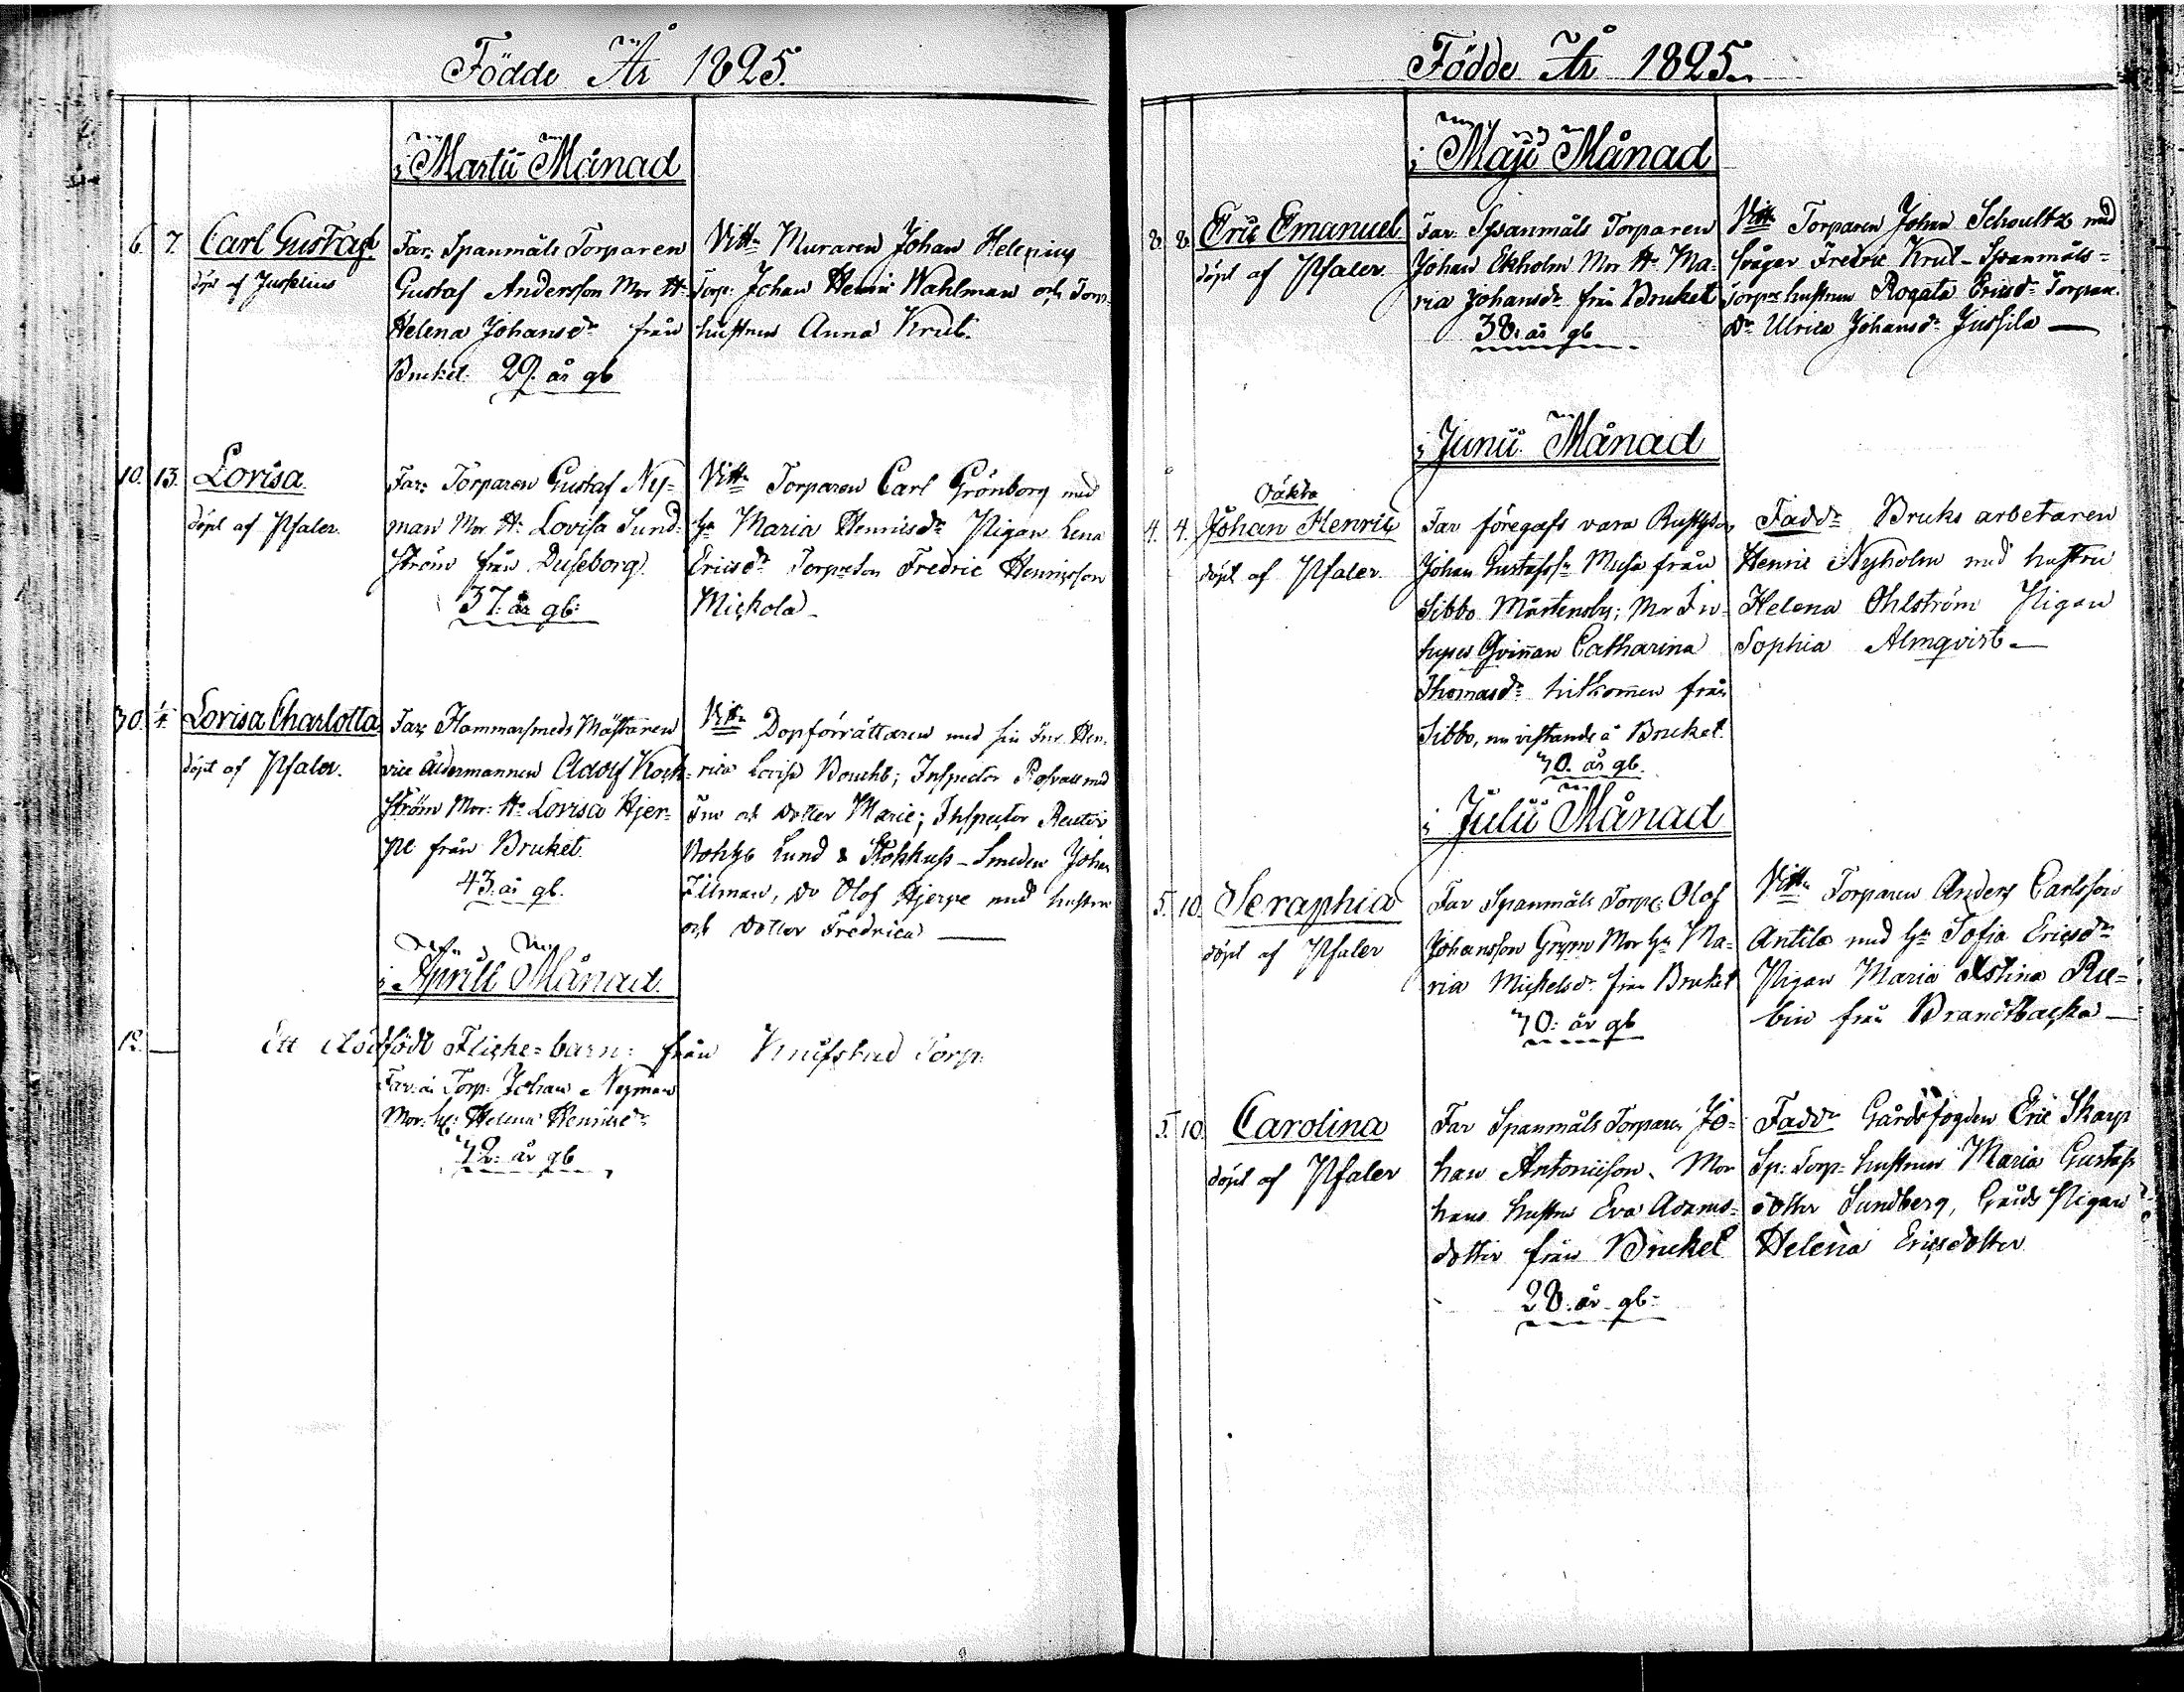 Födde År 1825.
i Martii Månad
6. 7. Carl Gustaf
döpt af Juselius
Far: Spanmåls Torparen
Gustaf Andersson Mor H:
Helena Johansdr från
Bruket. 29. år gl
Vittn Muraren Johan Helenius
Torp: Johan Henric Wahlman och Torp
hustrun Anna Krut.
10. 13. Lovisa
döpt af Pfaler.
Far: Torparen Gustaf Ny=
man Mor H: Lovisa Sund=
ström från Duseborg.
37. år gl:
Vittn Torparen Carl Grönborg med
Maria Henricsdr Pigan Lena
Ericsdr Torpareson Fredric Henricsson
Mickola
30. Lovisa Charlotta
döpt af Pfaler.
Far: Hammarsmeds Mästaren
vice åldermannen Adolf Kock=
ström Mor: H: Lovisa Hjer=
pe från Bruket.
43. år gl.
Vittn Dopförrättaren med sin Fru Hen=
rica Lovisa Boucht; Inspector med
Fru och dotter Marie; Inspector Reuter
Lund & Smeden Johan
Tilman, do Olof Hjerpe med hustru
och dotter Fredrica
i Aprill Månad.
12. — Ett dödfödt Flicke=barn: från Torp:
Far: är Torp: Johan Nyman
Mor: h: Helena Henricsdr
42: år gl
Födde År 1825.
i Maji Månad
8. 8. Eric Emanuel
döpt af Pfaler.
Far: Spanmåls Torparen
Johan Ekholm Mor H: Ma=
ria Johansdr från Bruket
38. år gl
Vittn Torparen Johan Schoultz med
svåger Fredric Krut - Spanmåls=
torpare hustrun Rogata Ericsdr Torpare
dr Ulrica Johansdr Jussila —
i Junii Månad
Oäkta
4. 4. Johan Henric
döpt af Pfaler.
Far föregafs vara
Johan Gustafssn Musa från
Sibbo Mårtensby; Mor In=
hyses Qvinnan Catharina
Thomasdr hitkommen från
Sibbo, nu vistande å Bruket.
40. år gl.
Faddr Bruks arbetaren
Henric Nyholm med hustru
Helena Ohlström Pigan
Sophia Almqvist —
i Julii Månad
5. 10. Seraphia
döpt af Pfaler
Far Spanmåls Torp: Olof
Johansson Grym Mor hn Ma=
ria Mickelsdr från Bruket
40: år gl
Vittn Torparen Anders Carlsson
Antila med hn Sofia Ericsdr
Pigan Maria Stina Ru=
bin från Brandtbacka —
5. 10. Carolina
döpt af Pfaler
Far Spanmåls Torparen Jo=
han Antoniison. Mor
hans hustru Eva Adams=
dotter från Bruket
28. år gl:
Faddr Gårdsfogden Eric Skarp
Sp: Torp: hustrun Maria Gustafs
dotter Sundberg, Gårds Pigan
Helena Ericsdotter